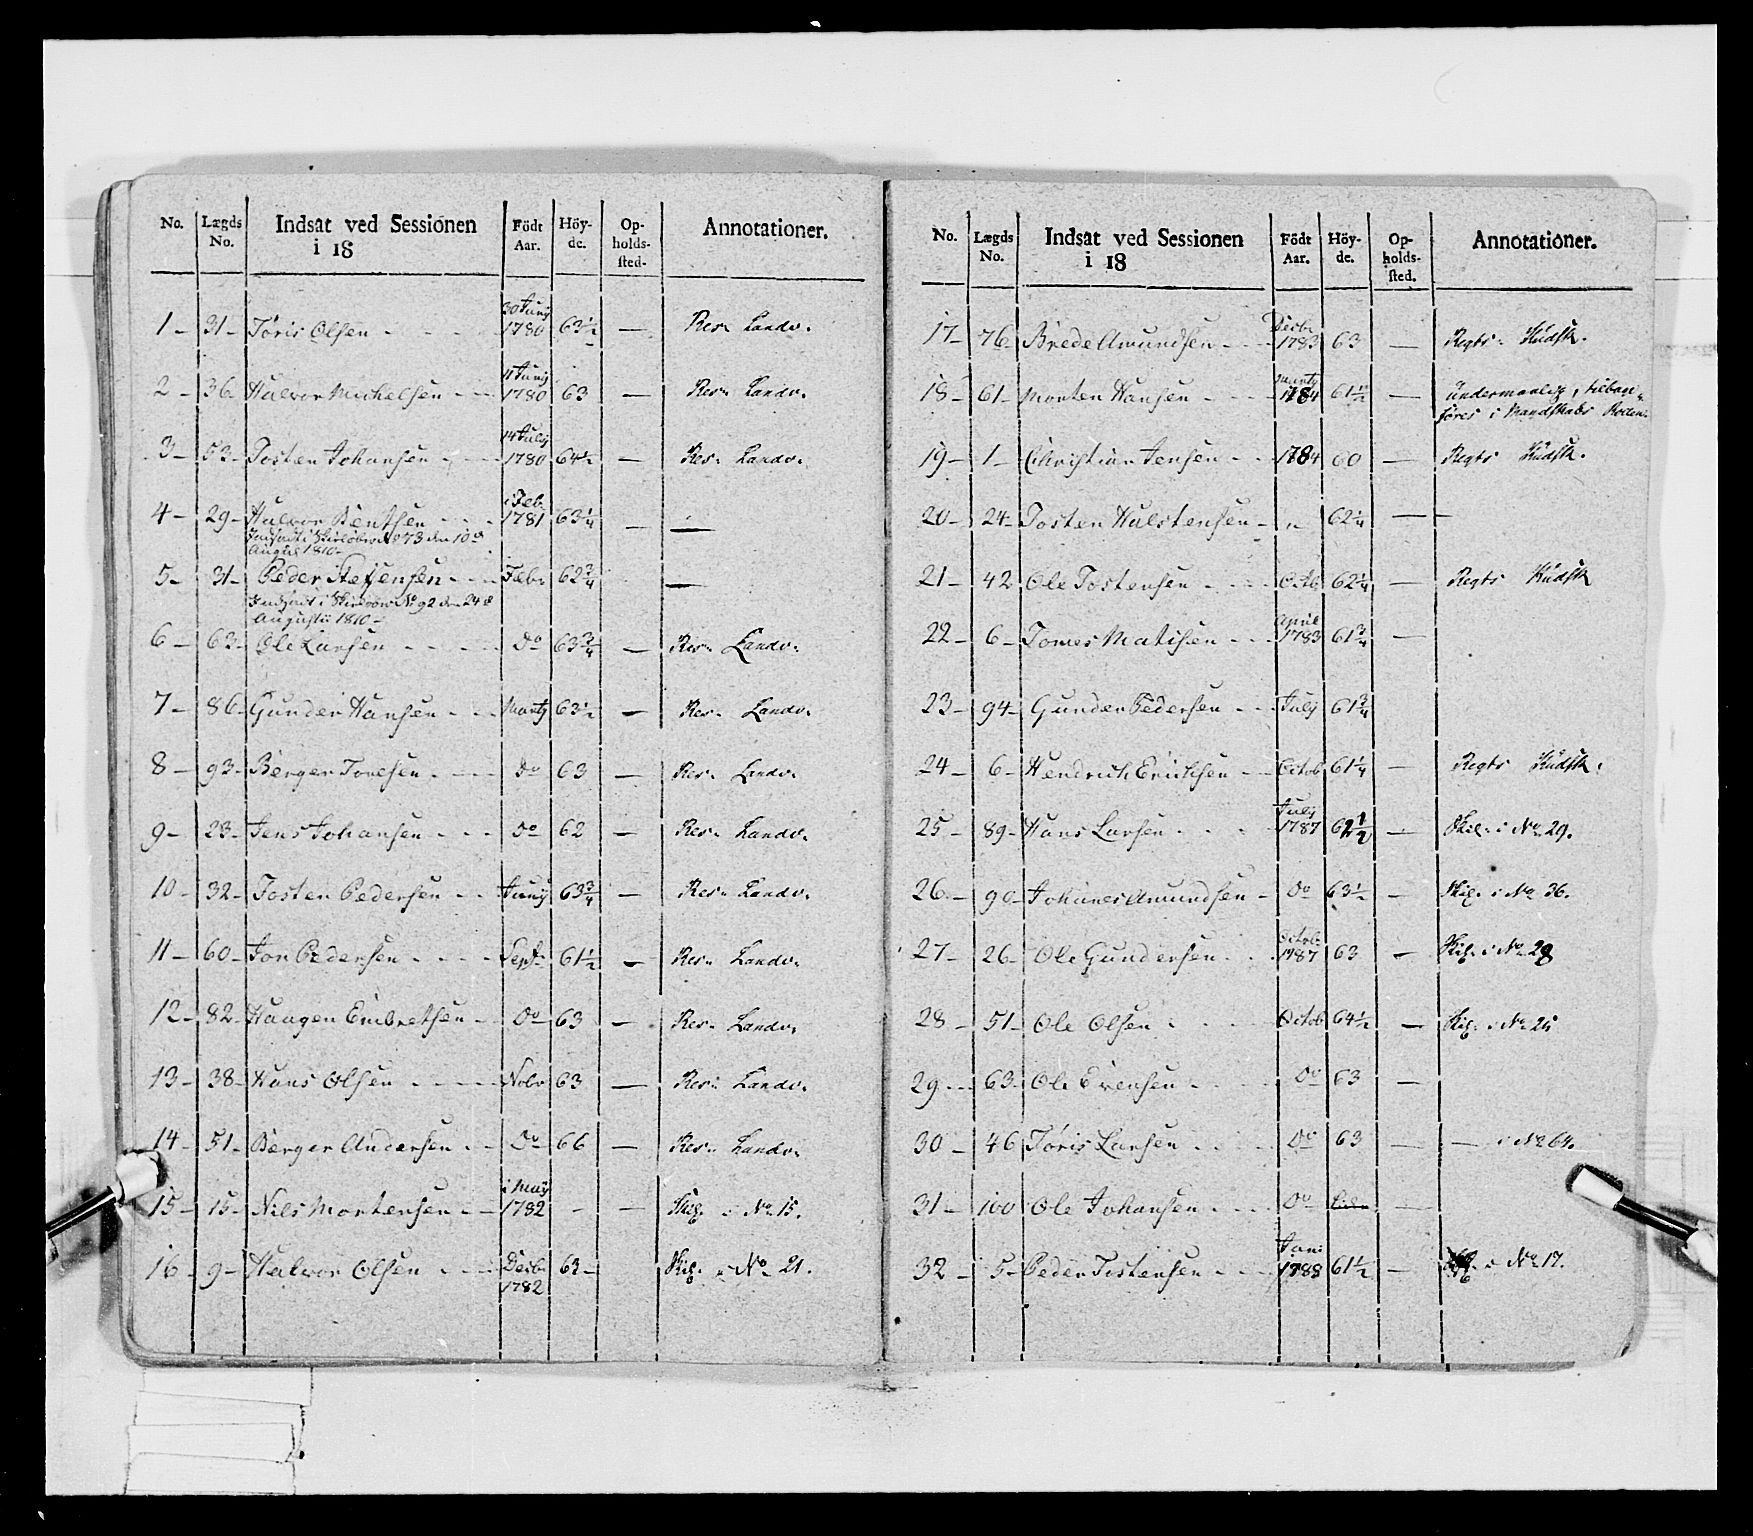 No. Lægds No. Indsat ved Sessionen i 18 Födt Aar. Höyde. Opholdssted. Annotationer.
1 – 31 – Töris Olsen 30 Juny 1780 63½ — Res. Landv.
2 – 36 Halvor Michelsen 11 Juny 1780 63 — Res. Landv.
3 – 53 – Tosten Johansen 14 July 1780 64½ — Res. Landv.
4 – 29 – Halvor Bentsen i Feb. 1781 63¼ — —
Indsadt i No 73 den 10d
August 1810 –
5 – 31 – Peder Steffensen Febr 62¾ —
Indsadt i No 92 den 24d
Augusti 1810 –
6 – 63 – Ole Larsen Do 63¾ — Res. Landv.
7 – 86 – Gunder Hansen Marty 63½ — Res. Landv.
8 – 93 – Berger Torelsen Do 63 — Res. Landv.
9 – 23 – Jens Johansen Do 62 — Res. Landv.
10 – 32 – Tosten Pedersen Juny 63¾ — Res. Landv.
11 – 60 – Jon Pedersen Septr 61½ — Res. Landv.
12 – 82 – Haagen Embretsen Do 63 — Res. Landv.
13 – 38 – Hans Olsen Nobr 63 — Res. Landv.
14 – 51 – Berger Andersen Do 66 — Res. Landv.
15 – 15 – Nils Mortensen i May 1782 – — Skil. i No 15.
16 – 9 – Halvor Olsen Desbr 1782 63 – Skil. i No 21.
No. Lægds No. Indsat ved Sessionen i 18 Födt Aar. Höyde. Opholdssted. Annotationer.
17 – 76 Brede Amundsen Desbr 1783 63 — Regts Kudsk.
18 – 61 – Morten Hansen Marty 1784 61½ — undermaalig, tilbage
föres i Mandskabs Rollen
19 – 1 – Christian Jensen 1784 60 — Regts Kudsk.
20 – 24 – Tosten Halstensen – " 62¼ — —
21 – 42 Ole Tostensen Octb 62¼ — Regts Kudsk
22 – 6 – Tomes Matisen April 1783 61¾ —
23 – 94 – Gunder Pedersen July 61¾
24 – 6 – Hendrich Erichsen Octob 61¼ — Regts Kudsk.
25 – 89 – Hans Larsen July 1787 62½ — Skil. i No 29.
26 – 90 – Johanes Amundsen – Do 63½ — Skil. i No 36.
27 – 26 – Ole Gundersen Octob. 1787 63 — Skil. i No 28
28 – 51 – Ole Olsen Octob 64½ — Skil. i No 25
29 – 63 – Ole Evensen Do 63 —
30 – 46 Töris Larsen Do 63 — — i No 64.
31 – 100 Ole Johansen Do —
32 – 5 – Peder Tostensen Jani 1788 61½ — i No 17.